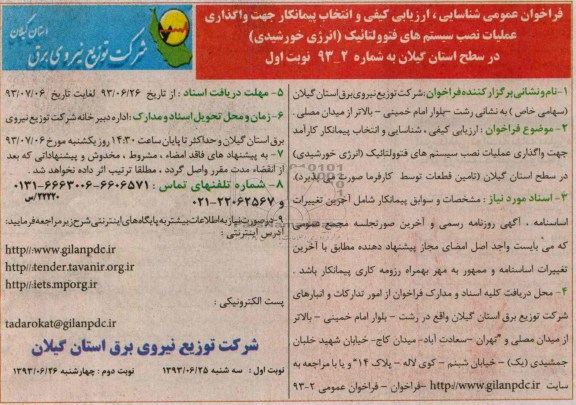 فراخوان عمومی شناسایی ، ارزیابی کیفی و انتخاب پیمانکار جهت واگذاری
عملیات نصب سیستم های فتوولتائیک (انرژی خورشیدی)
در سطح استان گیلان به شماره ۲_۹۳ نوبت اول
استان گیلان
شرکت توزیع نیروی برق
۱-نام و نشانی برگزار کننده فراخوان: شرکت توزیع نیروی برق استان گیلان
(سهامی خاص) به نشانی رشت -بلوار امام خمینی - بالاتر از میدان مصلی.
۲- موضوع فراخوان : ارزیابی کیفی ، شناسایی و انتخاب پیمانکار کارآمد
جهت واگذاری عملیات نصب سیستم های فتوولتائیک (انرژی خورشیدی)
در سطح استان گیلان (تامین قطعات توسط کارفرما صورت می پذیرد).
۳- اسناد مورد نیاز : مشخصات و سوابق پیمانکار شامل آخرین تغییرات
اساسنامه ، آگهی روزنامه رسمی و آخرین صورتجلسه مجمع عمومی
که می بایست واجد اصل امضای مجاز پیشنهاد دهنده مطابق با آخرین
تغییرات اساسنامه و ممهور به مهر بهمراه رزومه کاری پیمانکار باشد .
۴- محل دریافت کلیه اسناد و مدارک فراخوان از امور تدارکات و انبارهای
شرکت توزیع برق استان گیلان واقع در رشت - بلوار امام خمینی - بالاتر
از میدان مصلی و "تهران -سعادت آباد- میدان کاج- خیابان شهید خلبان
جمشیدی (یک) - خیابان شبنم - کوی لاله - پلاک ۱۴" و یا با مراجعه به
سایت http://www.gilanpdc.ir -فراخوان - فراخوان عمومی ۲-۹۳
۵- مهلت دریافت اسناد : از تاریخ ۹۳/۰۶/۲۶ لغایت تاریخ ۹۳/۰۷/۰۶
۶- زمان و محل تحویل اسناد و مدارک : اداره دبیر خانه شرکت توزیع نیروی
برق استان گیلان و حداکثر تا پایان ساعت ۱۴:۳۰ روز یکشنبه مورخ ۹۳/۰۷/۰۶
۷- به پیشنهاد های فاقد امضاء ، مشروط ، مخدوش و پیشنهاداتی که بعد
از انقضاء مدت مقرر واصل گردد ، مطلقا ترتیب اثر داده نخواهد شد .
۸- شماره تلفنهای تماس : ۶۶۰۶۵۷۱-۶۶۶۳۰۰۶-۰۱۳۱
و ۲۲۰۶۲۵۶۷-۰۲۱ ۲۲۲۲۰/س
۹-در صورت نیاز به اطلاعات بیشتر به پایگاه های اینترنتی شرح زیر مراجعه فرمایید:
آدرس اینترنتی :
http//:www.gilanpdc.ir
http//:tender.tavanir.org.ir
http//:iets.mporg.ir
پست الکترونیکی :
tadarokat@gilanpdc.ir
شرکت توزیع نیروی برق استان گیلان
نوبت اول : سه شنبه ۱۳۹۳/۰۶/۲۵ نوبت دوم : چهارشنبه ۱۳۹۳/۰۶/۲۶